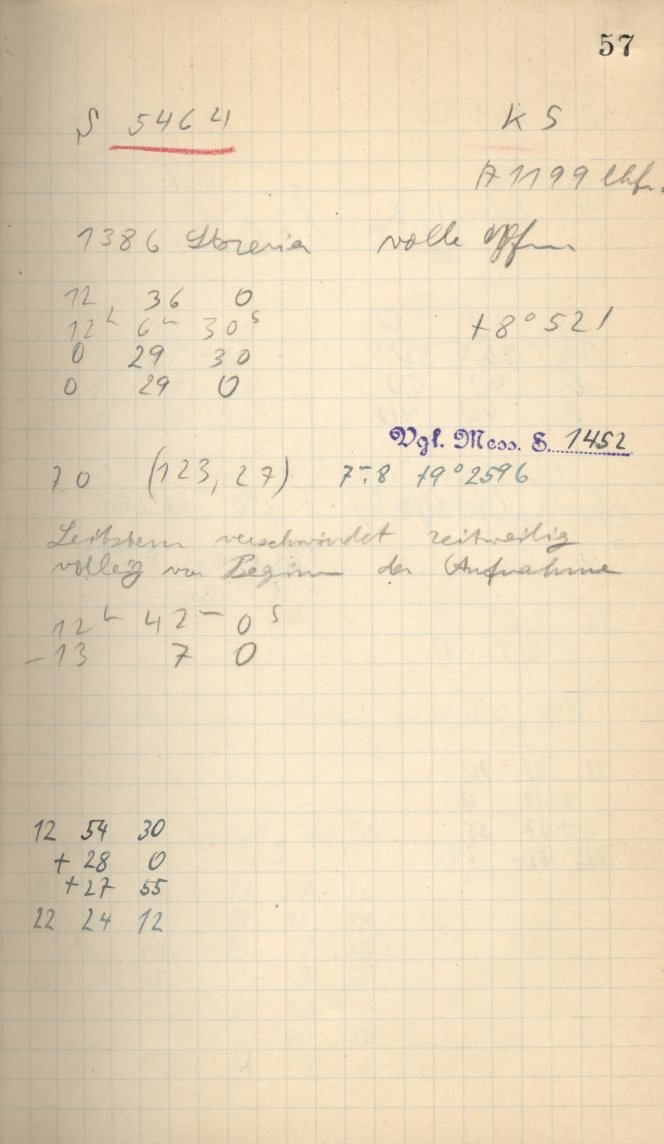 57
S 5464 KS
A 1199 Uhr.
1386 Storeria volle Öffn
12 36 0
12h 6m 30s +8° 521
0 29 30
0 29 0
Vgl. Mess. S. 1452
7.0 (123, 27) 7m.8 +9° 2596
Leitstern verschwindet zeitweilig
völlig vor Beginn der Aufnahme
12h 42m 0s
-13 7 0
12 54 30
+28 0
+27 55
22 24 12